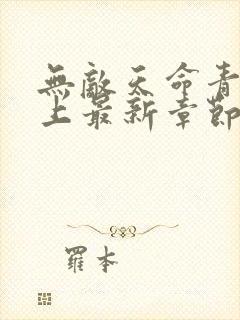 無敵天命青
上最新章節
羅本